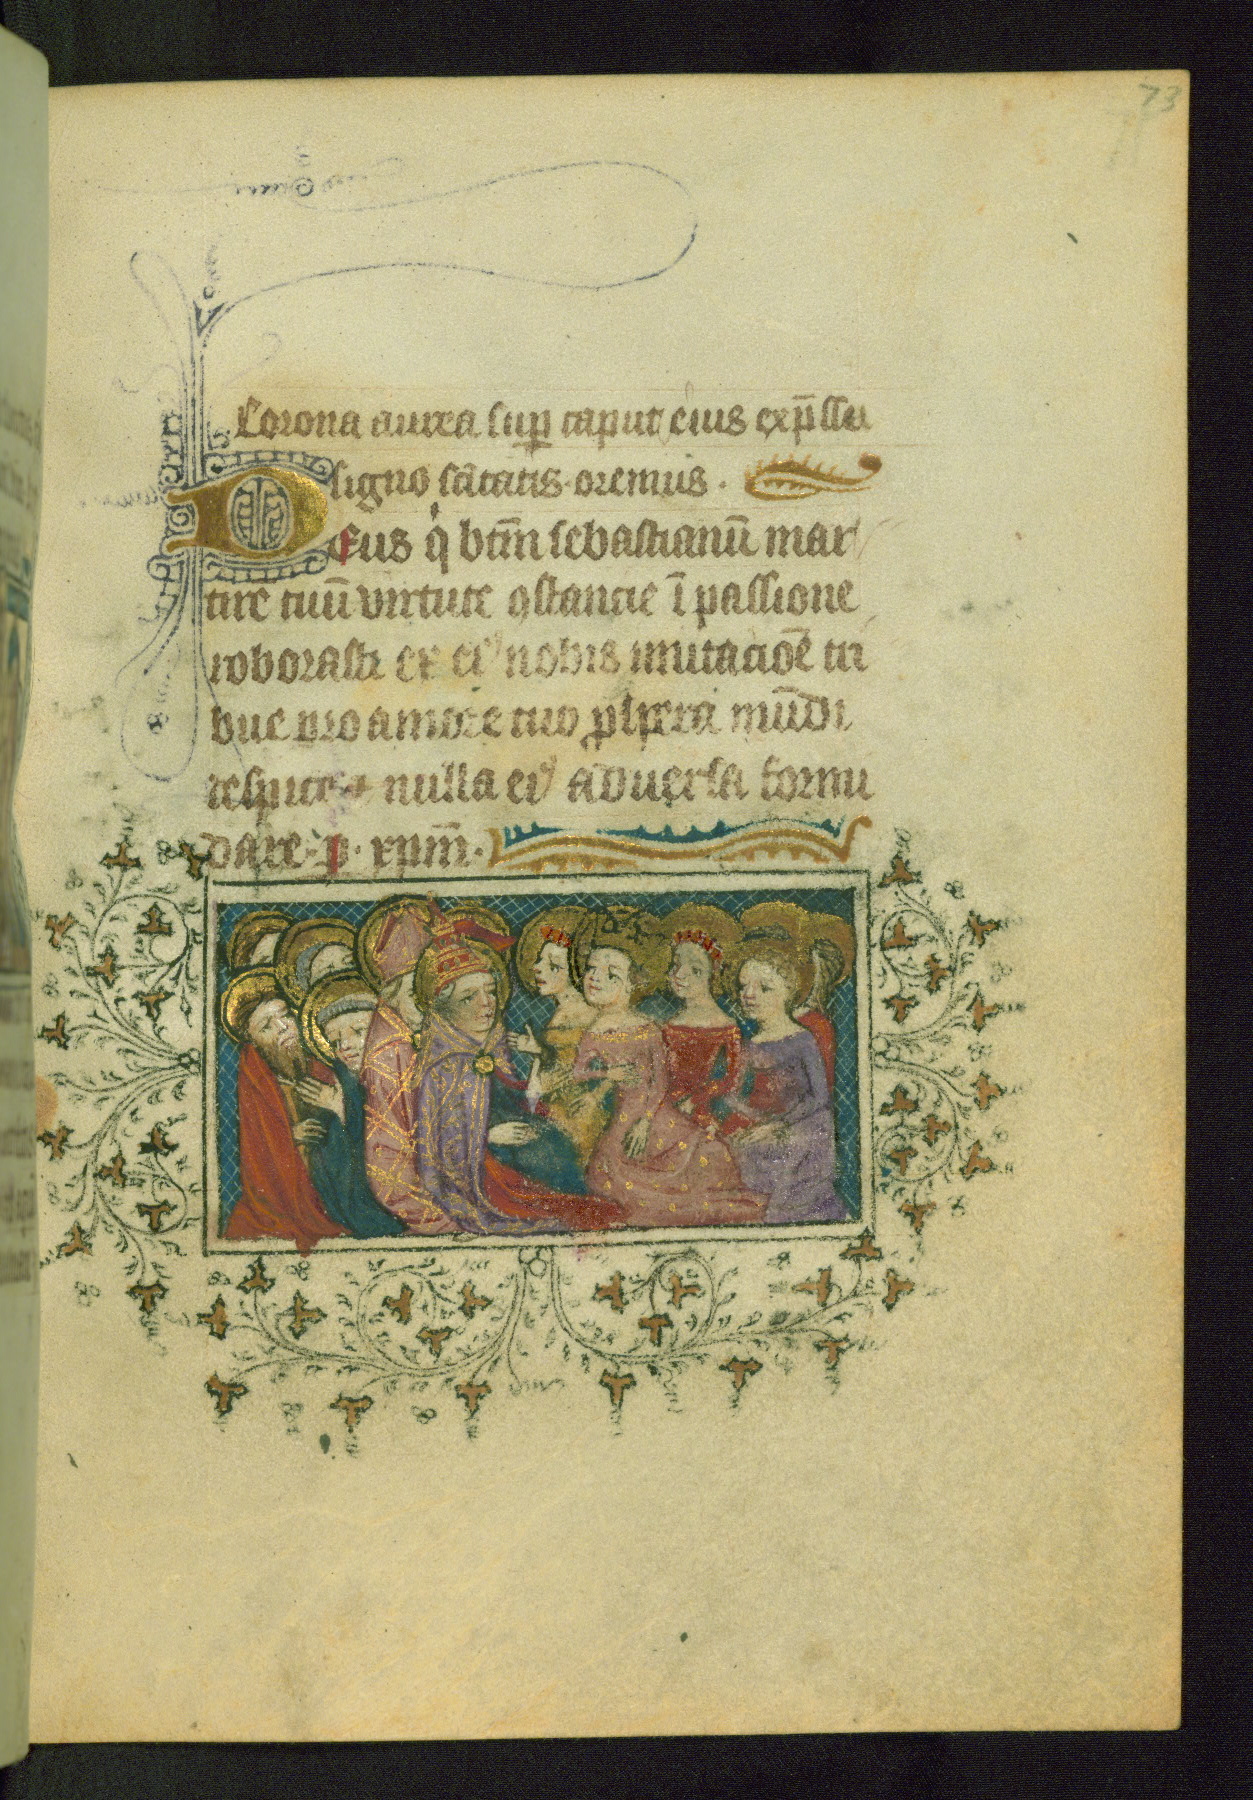 73
Corona aurea sup̲ caput eius exp̄ssa
signo sc̄itatis. oremus.
Deus q̇ btm̄ sebastianū mar
tirē tuū virtute ꝯstancie ī passione
roborasti ex eiꝰ nobis imitacōē tri
bue pro amore tuo ꝓspera mūdi
respicere ⁊ nulla eiꝰ aduersa formi
dare. p. xp̄m.